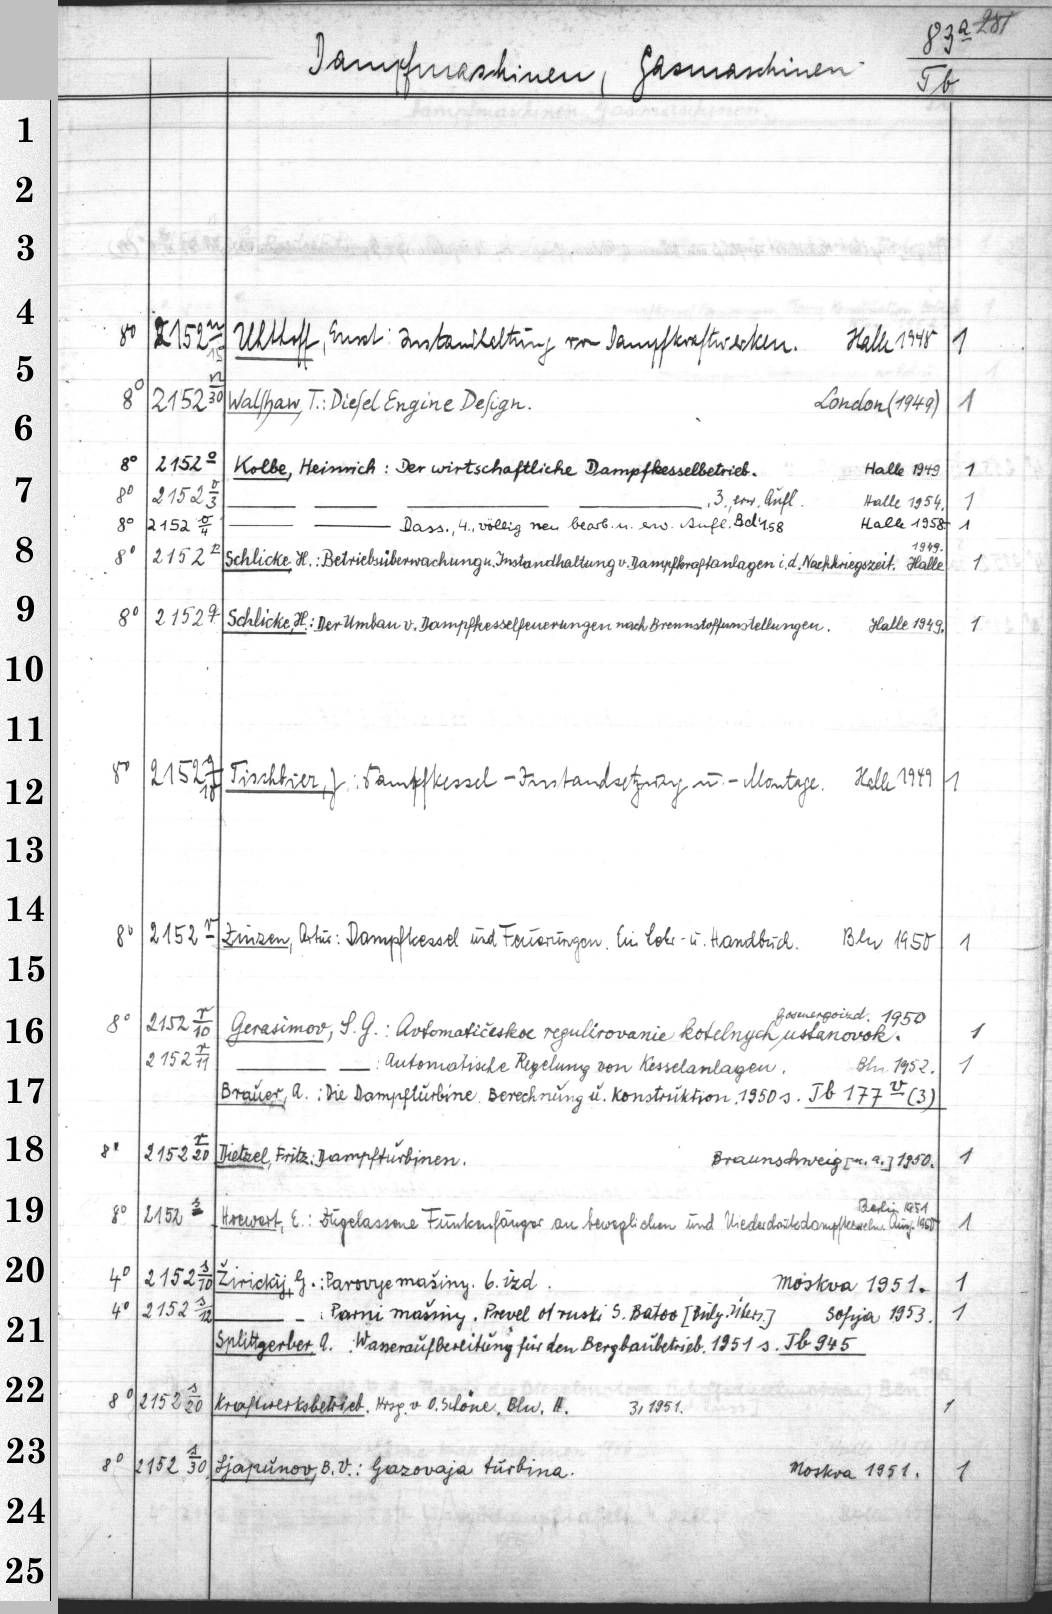 83a 281
Dampfmaschinen, Gasmaschinen
Tb
1
2
3
4
8° 2152 m/15 Uhthoff, Ernst: Instandhaltung von Dampfkraftwerken. Halle 1948 1
5
8° 2152 n/30 Walshaw, T.: Diesel Engine Design. London (1949) 1
6
8° 2152 o Kolbe, Heinrich: Der wirtschaftliche Dampfkesselbetrieb. Halle 1949 1
7
8° 2152 o/3 — — — , 3., erw. Aufl. Halle 1954. 1
8° 2152 o/4 — — Dass., 4., völlig neu bearb. u. erw. Aufl. Halle 1958 1
8
1949.
8° 2152 p Schlicke, H.: Betriebsüberwachung u. Instandhaltung v. Dampfkraftanlagen i. d. Nachkriegszeit. Halle 1
9
8° 2152 q Schlicke, H.: Der Umbau v. Dampfkesselfeuerungen nach Brennstoffumstellungen. Halle 1949. 1
10
11
8° 2152 q/18 Tischbier, J.: Dampfkessel-Instandsetzung u. -Montage. Halle 1949 1
12
13
14
8° 2152 r Zinzen, Artur: Dampfkessel und Feuerungen. Ein Lehr- u. Handbuch. Bln 1950 1
15
Gosenergoizd. 1950
16
8° 2152 r/10 Gerasimov, S. G.: Avtomatičeskoe regulirovanie kotelnych ustanovok. 1
2152 r/11 — — : Automatische Regelung von Kesselanlagen. Bln 1952. 1
17
Brauer, A.: Die Dampfturbine. Berechnung u. Konstruktion. 1950 s. Tb 177 v (3)
18
8° 2152 r/20 Dietzel, Fritz: Dampfturbinen. Braunschweig [u. a.] 1950. 1
19
Berlin 1951
8° 2152 s E.: Zugelassene an beweglichen und Ausg. 1950 1
20
4° 2152 s/10 Žirickij, G.: Parovye mašiny. 6. izd. Moskva 1951. 1
4° 2152 s/12 — - : Parni mašiny. Prevel ot ruski S. Batoo [Bulg. Übers.] Sofija 1953. 1
21
Splittgerber, A. Wasseraufbereitung für den Bergbaubetrieb. 1951 s. Tb 945
22
8° 2152 s/20 Kraftwerksbetrieb. Hrsg. v. O. Schöne. Bln, H. 3, 1951. 1
23
8° 2152 s/30 Ljapunov, B. V.: Gazovaja turbina. Moskva 1951. 1
24
25